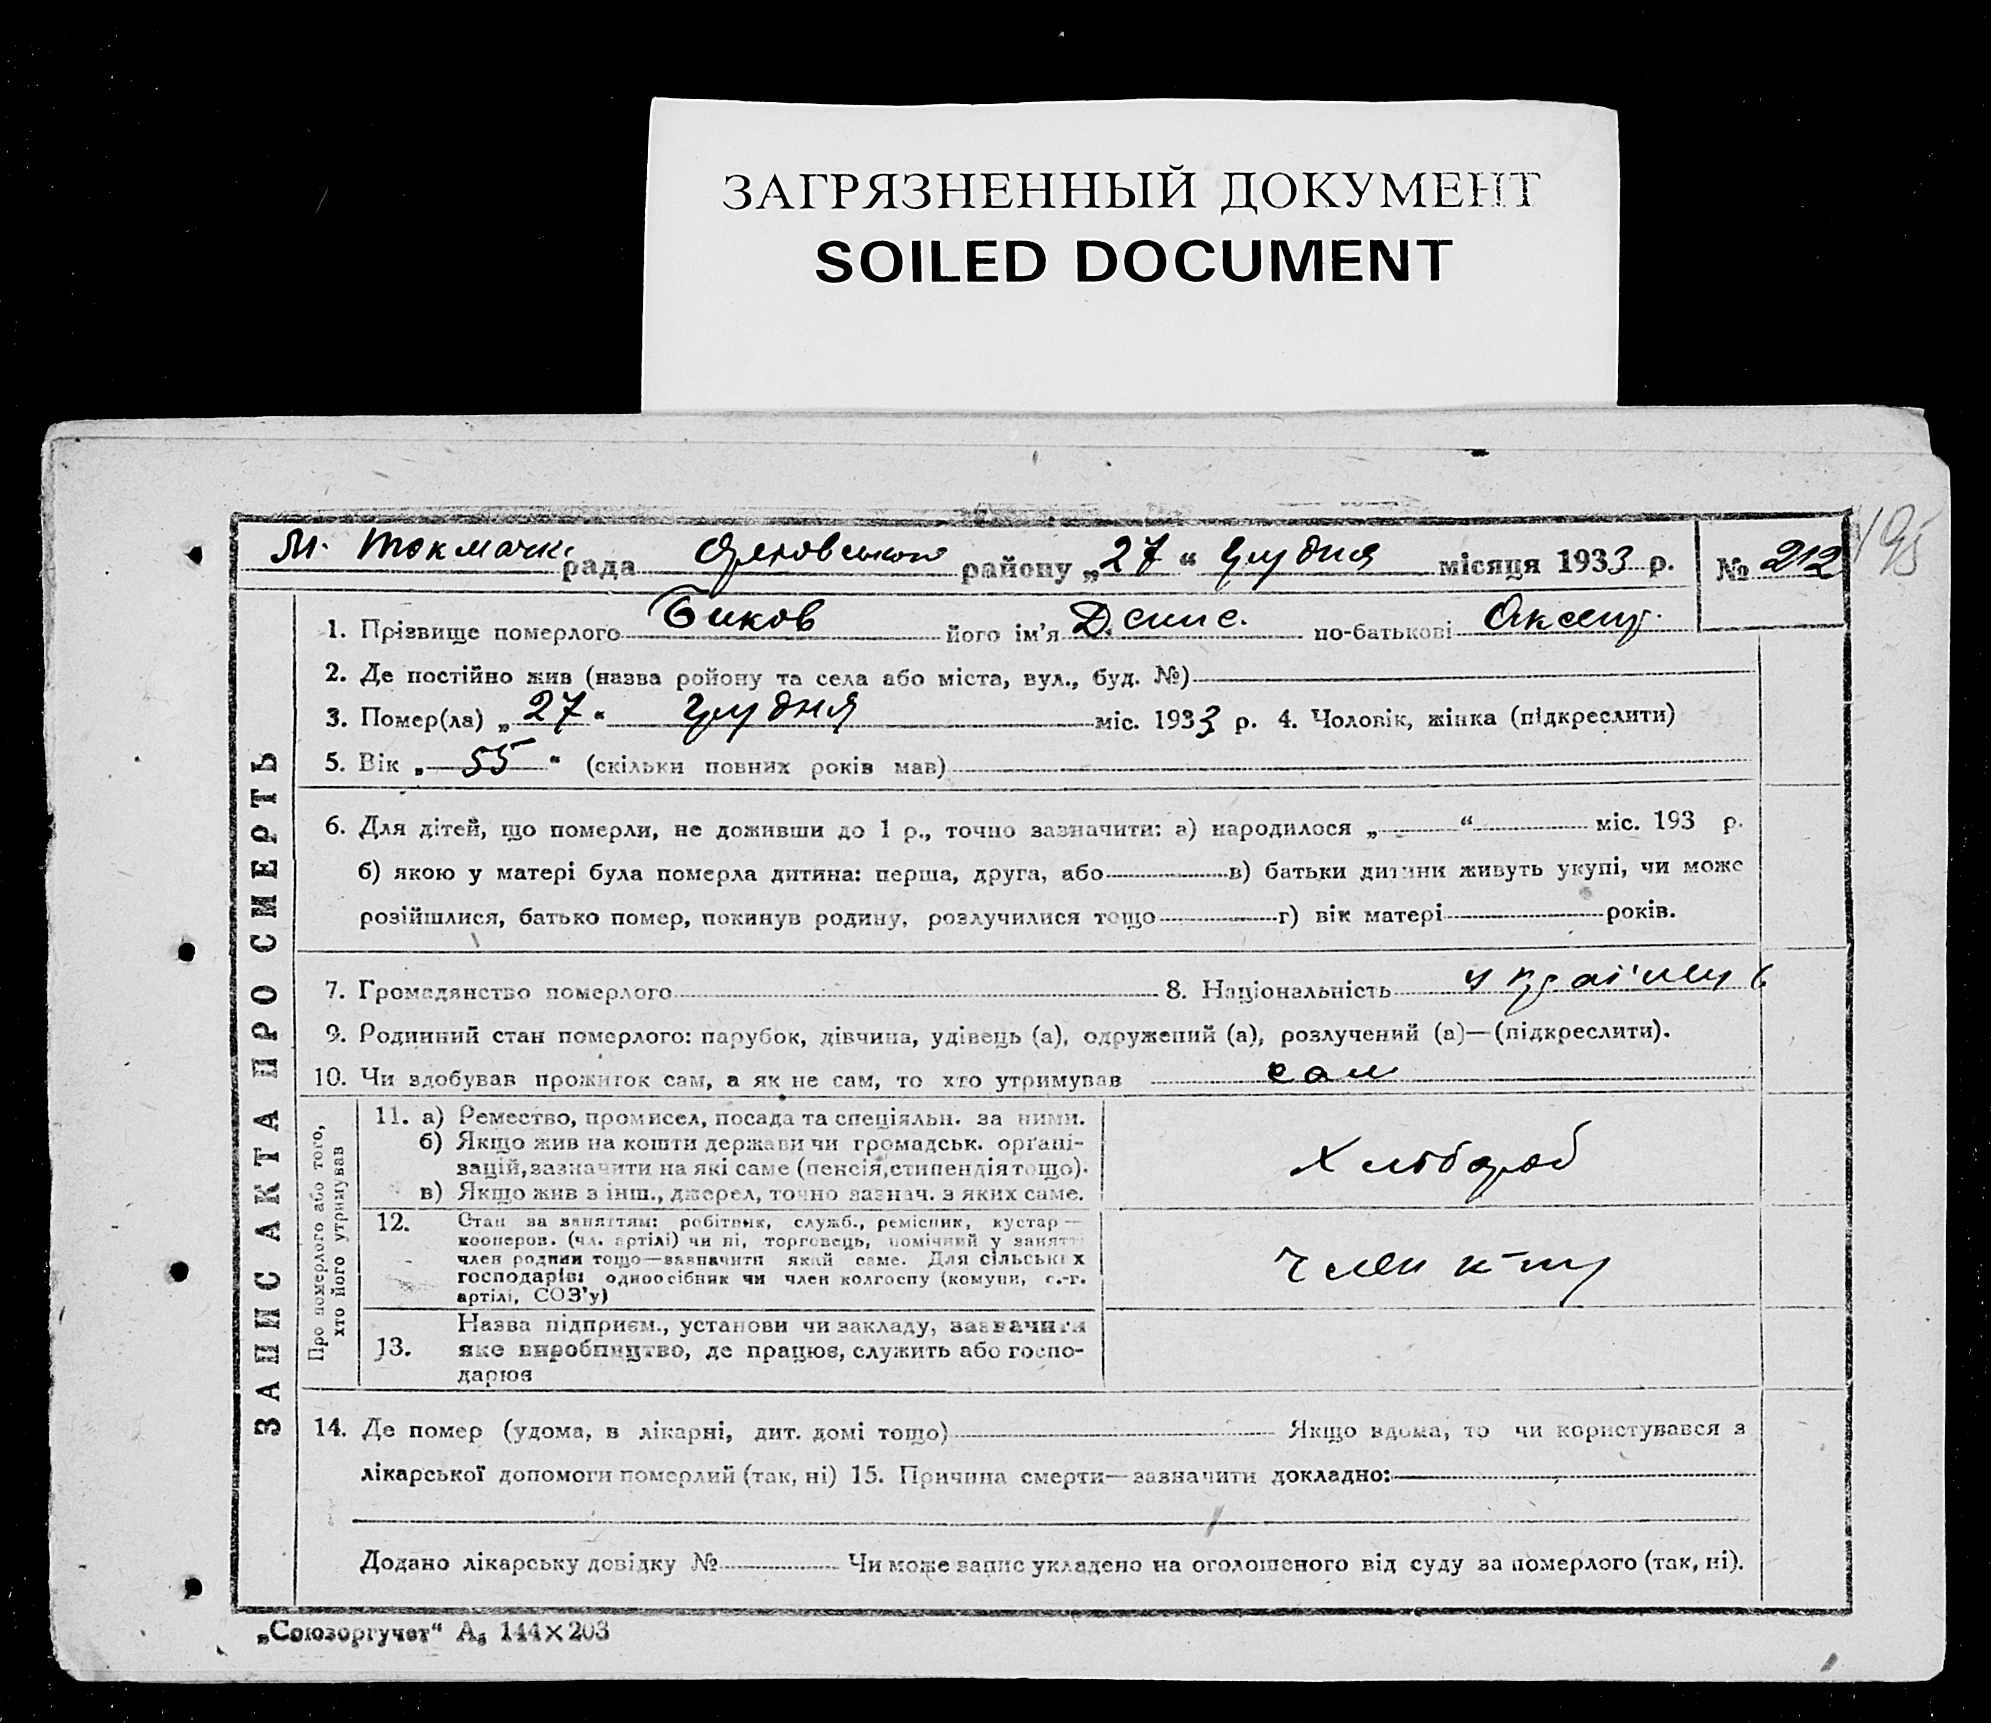 ЗАГРЯЗНЕННЫЙ ДОКУМЕНТ
SOILED DOCUMENT
195
М. Токмачк. рада Оріховського району „27“ грудня місяця 1933 р. № 212
ЗАПИС АКТА ПРО СМЕРТЬ
1. Прізвище померлого Биков його ім'я Денис. по-батькові Аксент.
2. Де постійно жив (назва ройону та села або міста, вул., буд. №)
3. Помер(ла) „27“ грудня міс. 1933 р. 4. Чоловік, жінка (підкреслити)
5. Вік „55“ (скільки повних років мав)
6. Для дітей, що померли, не доживши до 1 р., точно зазначити: а) народилося „ “ міс. 193 р.
б) якою у матері була померла дитина: перша, друга, або в) батьки дитини живуть укупі, чи може
розійшлися, батько помер, покинув родину, розлучилися тощо г) вік матері років.
7. Громадянство померлого 8. Національність україн
9. Родинний стан померлого: парубок, дівчина, удівець (а), одружений (а), розлучений (а)—(підкреслити).
10. Чи здобував прожиток сам, а як не сам, то хто утримував сам
Про померлого або того,
хто його утримував
11. а) Ремество, промисел, посада та спеціяльн. за ними.
б) Якщо жив на кошти держави чи громадськ. орґані-
зацій, зазначити на які саме (пенсія, стипендія тощо).
в) Якщо жив з інш., джерел, точно зазнач. з яких саме.
Хлібороб
12. Стан за заняттям: робітник, служб., ремісник, кустар—
кооперов. (чл. артілі) чи ні, торговець, помічний у занятті
член родини тощо—зазначити який саме. Для сільських
господарів: одноосібник чи член колгоспу (комуни, с.-г.
артілі, СОЗ'у)
Член к-пу
13. Назва підприєм., установи чи закладу, зазначити
яке виробництво, де працює, служить або госпо-
дарює
14. Де помер (удома, в лікарні, дит. домі тощо) Якщо вдома, то чи користувався з
лікарської допомоги померлий (так, ні) 15. Причина смерти—зазначити докладно:
Додано лікарську довідку № Чи може запис укладено на оголошеного від суду за померлого (так, ні).
„Союзоргучет“ А₅ 144×203